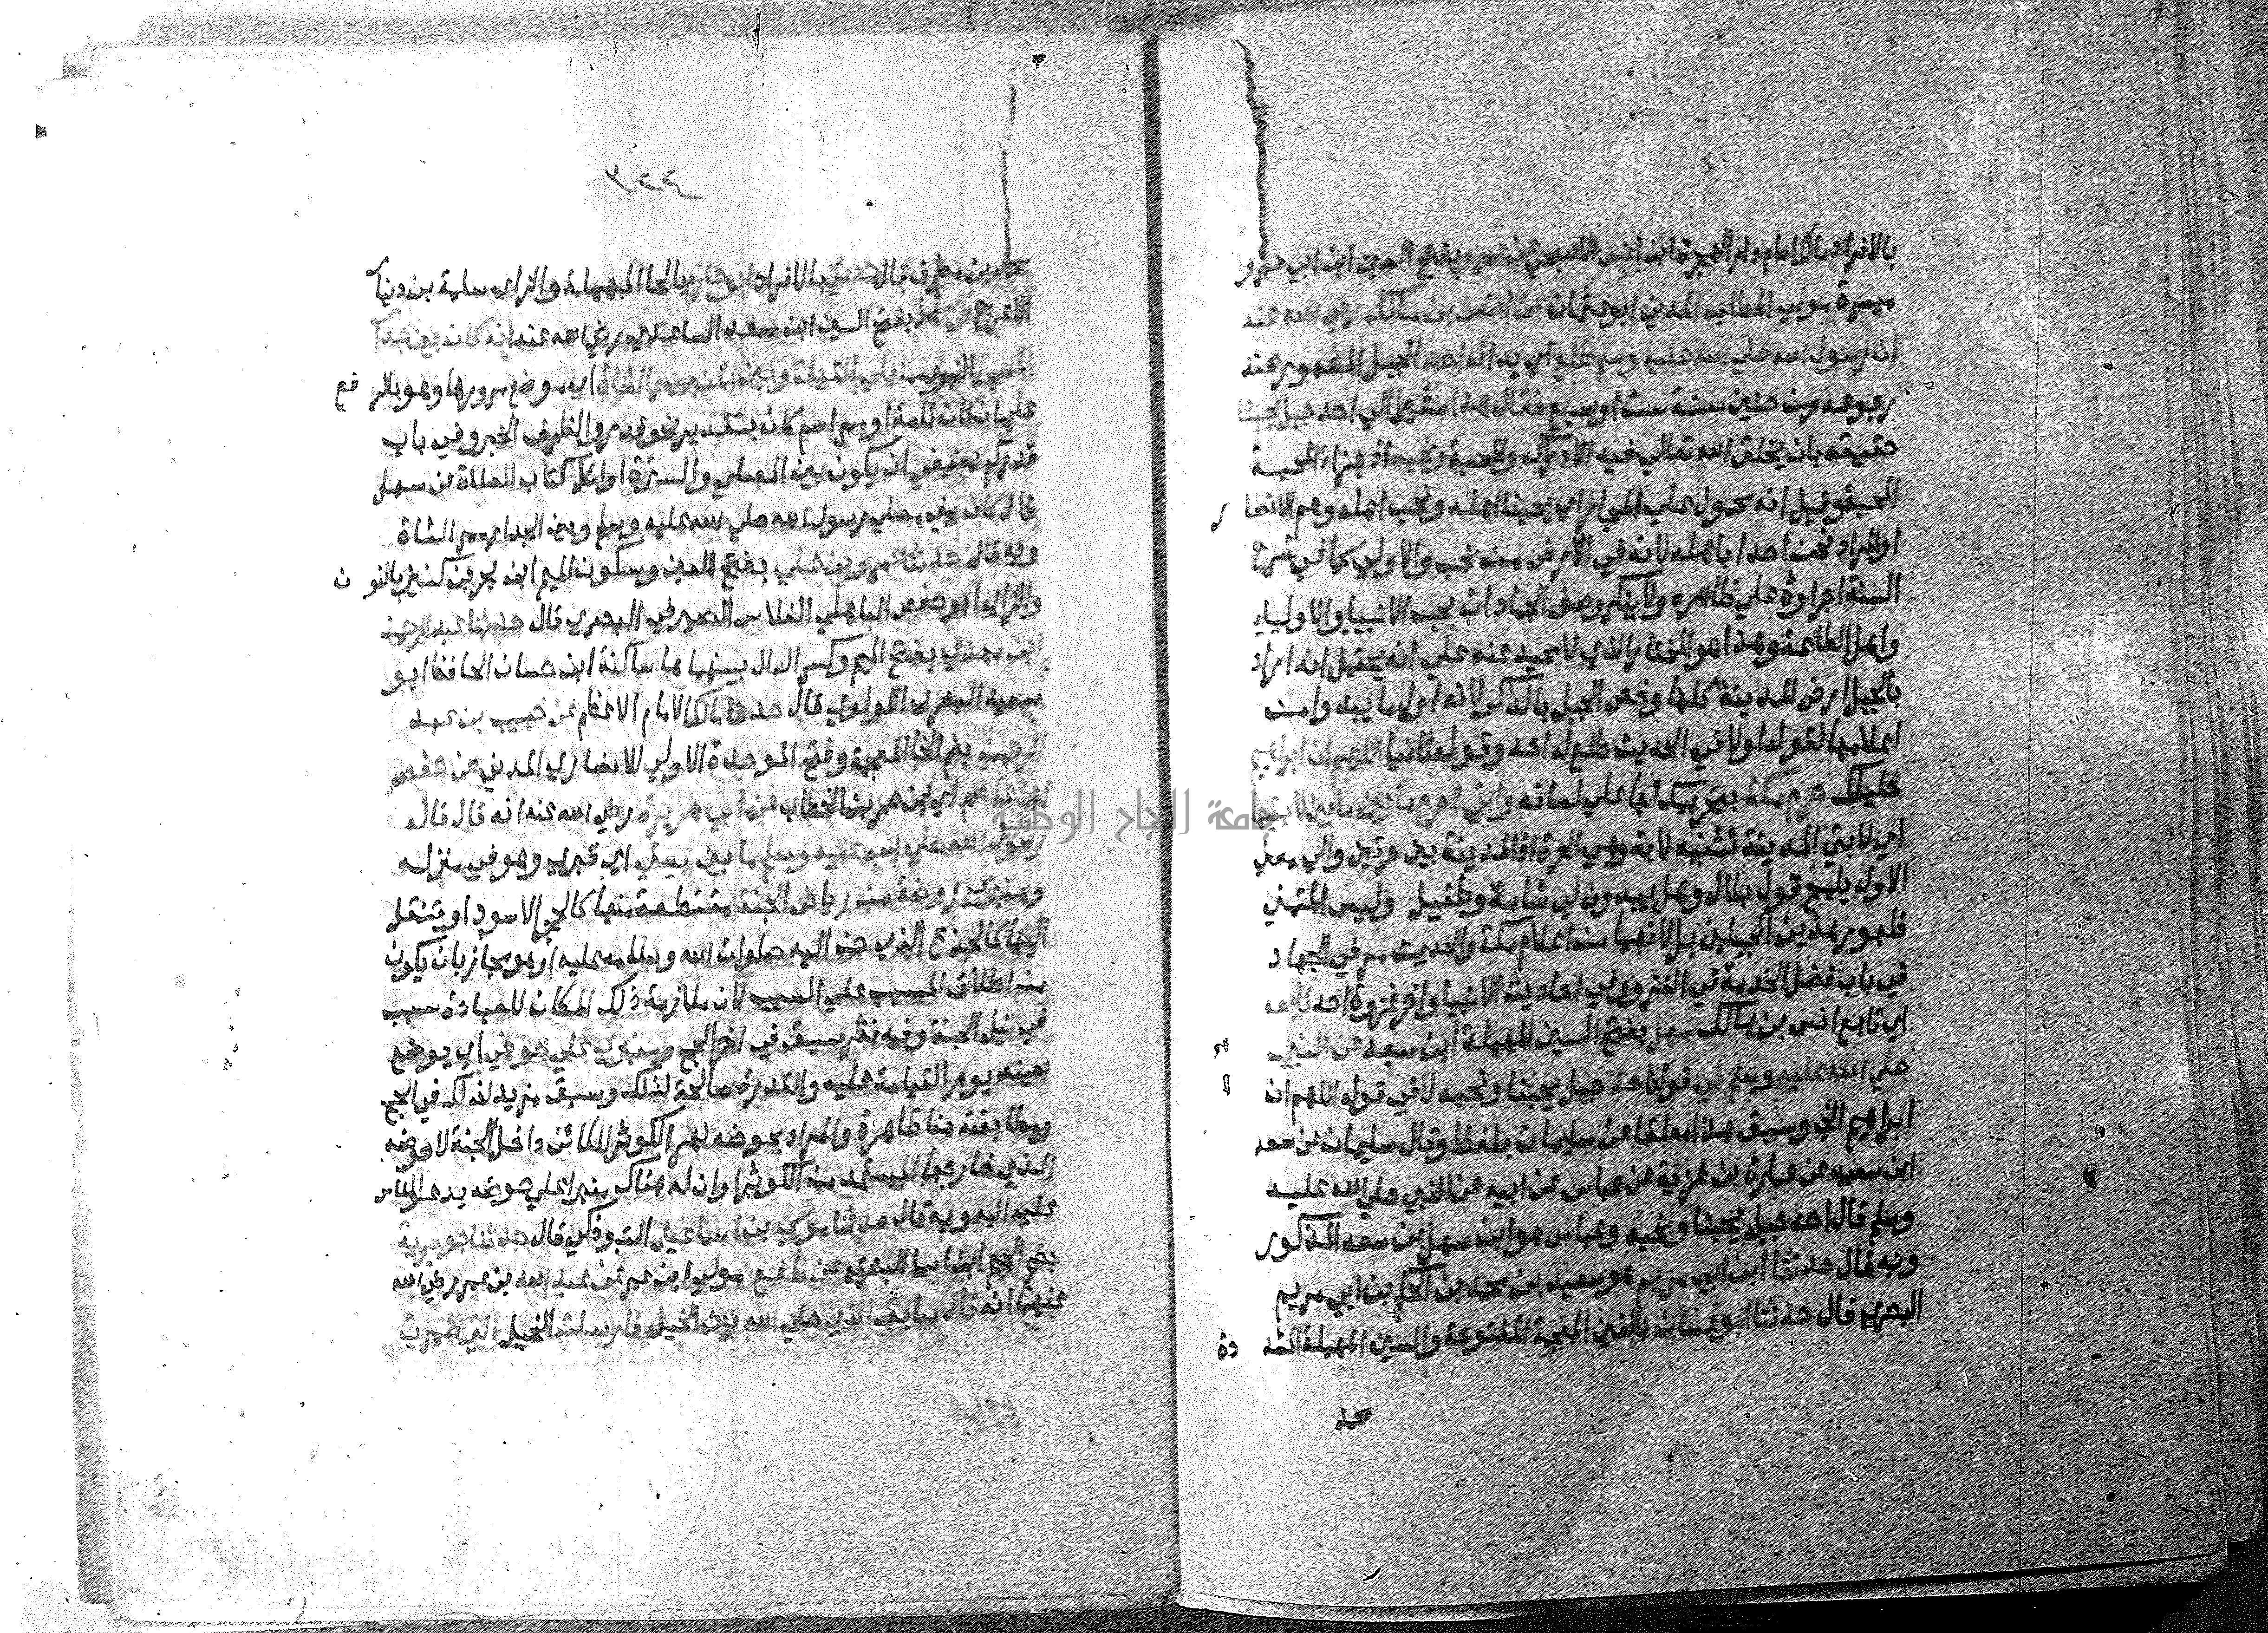 بالافراد مالك امام دار الهجرة ابن انس الاصبحي عن عمرو بفتح العين ابن ابي عمرو
ميسرة مولي المطلب المدني ابو عثمان عن انس بن مالك رضي الله عنه
ان رسول الله صلي الله عليه وسلم طلع اي بدا له احد الجبل المشهور عند
رجوعه من حنين سنة ست او سبع فقال هذا مشيرا الي احد جبل يحبنا
حقيقة بان يخلق الله تعالي فيه الادراك والمحبة ونحبه اذ جزاء المحبة
المحبة وقيل انه محمول علي المجاز اي يحبنا اهله ونحب اهله وهم الانصا ر
او المراد نحن احدا باهله لانه في الارض من نحب والاولي كما في شرح
السنة اجراؤه علي ظاهره ولا ينكر وصف الجمادات بحب الانبيا والاولياء
واهل الطاعة وهذا هو المختار الذي لا محيد عنه علي انه يحتمل انه اراد
بالجبل ارض المدينة كلها وخص الجبل بالذكر لانه اول ما يبدو من
اعلامها لقوله اولا في الحديث طلع له احد وقوله ثانيا اللهم ان ابراهيم
خليلك حرم مكة بتحريمك لها علي لسانه واني احرم ما بين لابتيها
اي لابتي المدينة تثنية لابة وهي الحرة اذ المدينة بين حرتين والي معني
الاول يلمح قول بلال وهل يبدون لي شامة وطفيل وليس المتمني
ظهور هذين الجبلين بل لانهما من اعلام مكة والحديث مر في الجهاد
في باب فضل الخدمة في الغزو وفي احاديث الانبيا واخر غزوة احد تابعه
اي تابع انس بن مالك سهل بفتح السين المهملة ابن سعد عن النبي
صلي الله عليه وسلم في قوله احد جبل يحبنا ونحبه لا في قوله اللهم ان
ابراهيم الخ وسبق هذا معلقا عن سليمان بلفظ وقال سليمان عن سعد
ابن سعيد عن عمارة بن غزية عن عباس عن ابيه عن النبي صلي الله عليه
وسلم قال احد جبل يحبنا ونحبه وعباس هو ابن سهل بن سعد المذكور
وبه قال حدثنا ابن ابي مريم هو سعيد بن محمد بن الحكم بن ابي مريم
البصري قال حدثنا ابو غسان بالغين المعجمة المفتوحة والسين المهملة المشد دة
محمد
٣٢٤
محمد بن مطرف قال حدثني بالافراد ابو حازم بالحا المهملة والزاي سلمة بن دينار
الاعرج عن سهل بفتح السين ابن سعد الساعدي رضي الله عنه انه كان بين جدار
المسجد النبوي مما يلي القبلة وبين المنبر ممر الشاة اي موضع مرورها وهو بالر فع
علي ان كان تامة او ممر اسم كان بتقدير نحو قدر والظرف الخبر وفي باب
قدركم ينبغي ان يكون بين المصلي والسترة اوائل كتاب الصلاة عن سهل
قال كان بين مصلي رسول الله صلي الله عليه وسلم وبين الجدار ممر الشاة
وبه قال حدثنا عمرو بن علي بفتح العين وسكون الميم ابن بحر بن كنيز بالنو ن
والزاي ابو حفص الباهلي الفلاس الصيرفي البصري قال حدثنا عبد الرحمن
ابن مهدي بفتح الميم وكسر الدال بينهما ها ساكنة ابن حسان الحافظ ابو
سعيد البصري اللولوي قال حدثنا مالك الامام الاعظم عن خبيب بن عبد
الرحمن بضم الخا المعجمة وفتح الموحدة الاولي الانصاري المدني عن حفص
ابن عاصم اي ابن عمر بن الخطاب عن ابي هريرة رضي الله عنه انه قال قال
رسول الله صلي الله عليه وسلم ما بين بيتي اي قبري وهو في منزله
ومنبري روضة من رياض الجنة مقتطعة منها كالحجر الاسود او تنتقل
اليها كالجذع الذي حن اليه صلوات الله وسلامه عليه او هو مجاز بان يكون
من اطلاق المسبب علي السبب لان ملازمة ذلك المكان للعبادة سبب
في نيل الجنة وفيه نظر سبق في اخر الحج ومنبري علي حوضي اي يوضع
بعينه يوم القيامة عليه والقدرة صالحة لذلك وسبق مزيد لذلك في الحج
ومطابقته هنا ظاهرة والمراد بحوضه نهر الكوثر الكائن داخل الجنة لا حوضه
الذي خارجها المستمد من الكوثر او ان له هناك منبرا علي حوضه يدعو الناس
عليه اليه وبه قال حدثنا موسي بن اسماعيل التبوذكي قال حدثنا جويرية
بضم الجيم ابن اسما البصري عن نافع مولي ابن عمر عن عبد الله بن عمر رضي الله
عنهما انه قال سابق النبي صلي الله بين الخيل فارسلت الخيل التي ضمرت
جامعة النجاح الوطنية